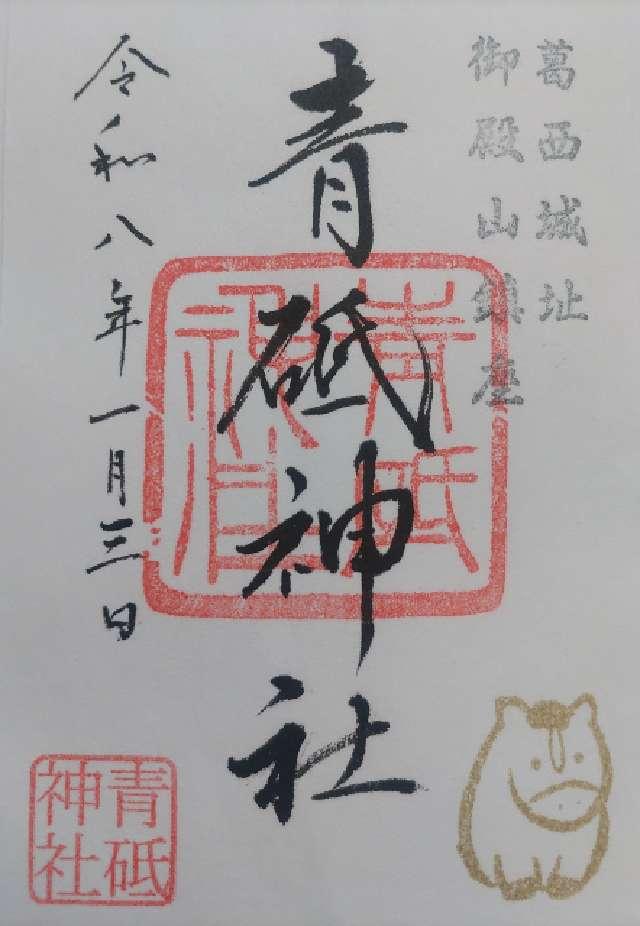 葛西城址
御殿山鎮座
青砥神社
令和八年一月三日
青砥
神社
青砥
神社